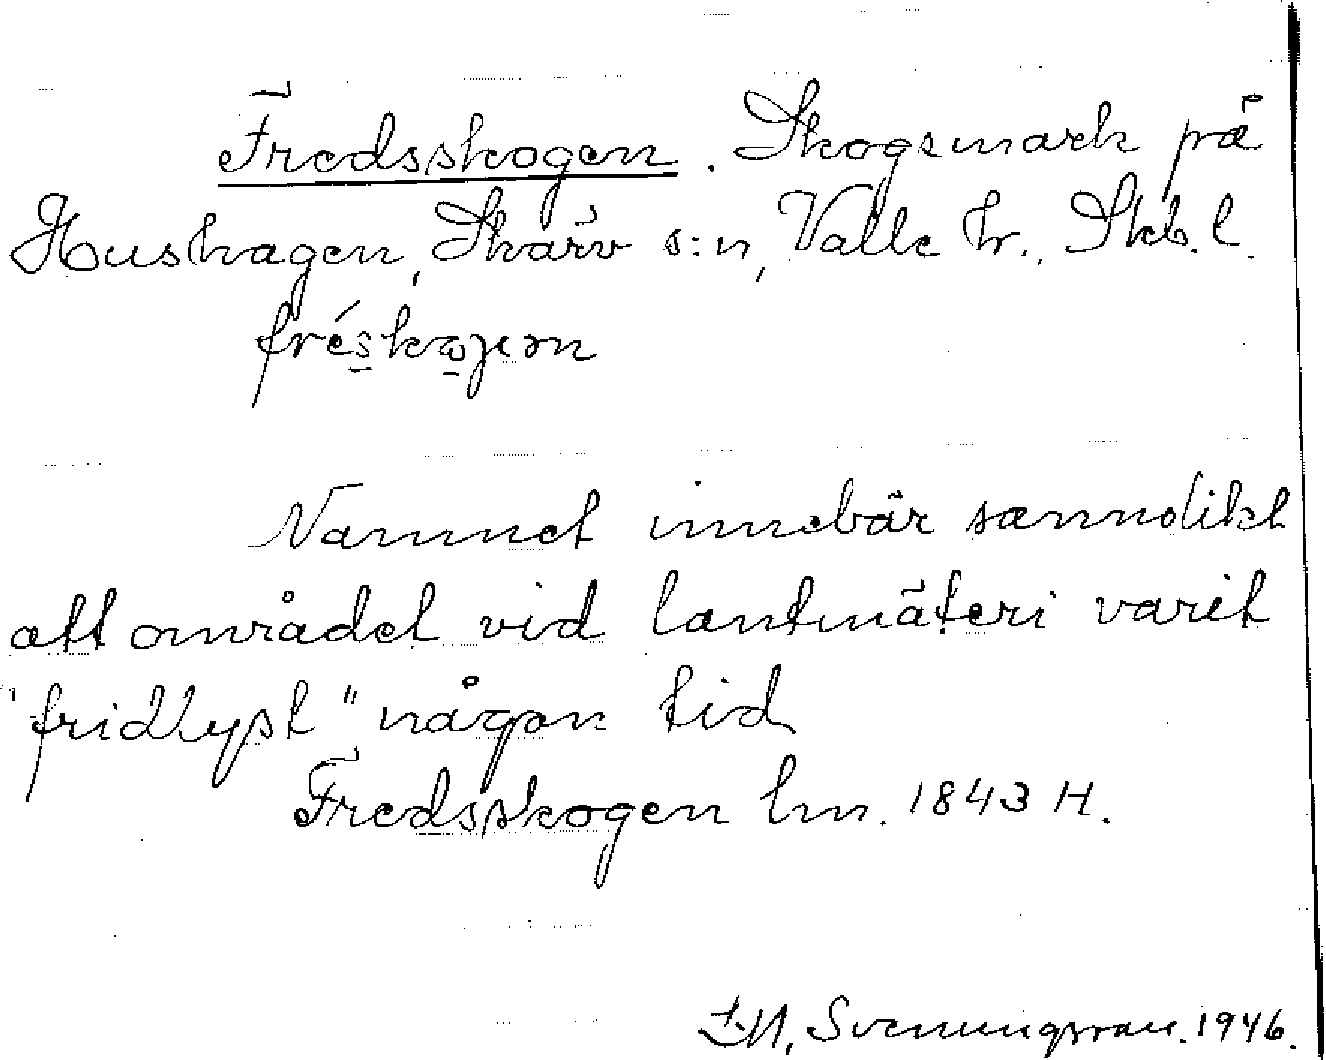 Fredsskogen. Skogsmark på
Hushagen, Skärv s:n, Valle hr., Skb. l.
Namnet innebär sannolikt
att området vid lantmäteri varit
"fridlyst" någon tid
Fredsskogen lm. 1843 H.
Svenungsson. 1946.